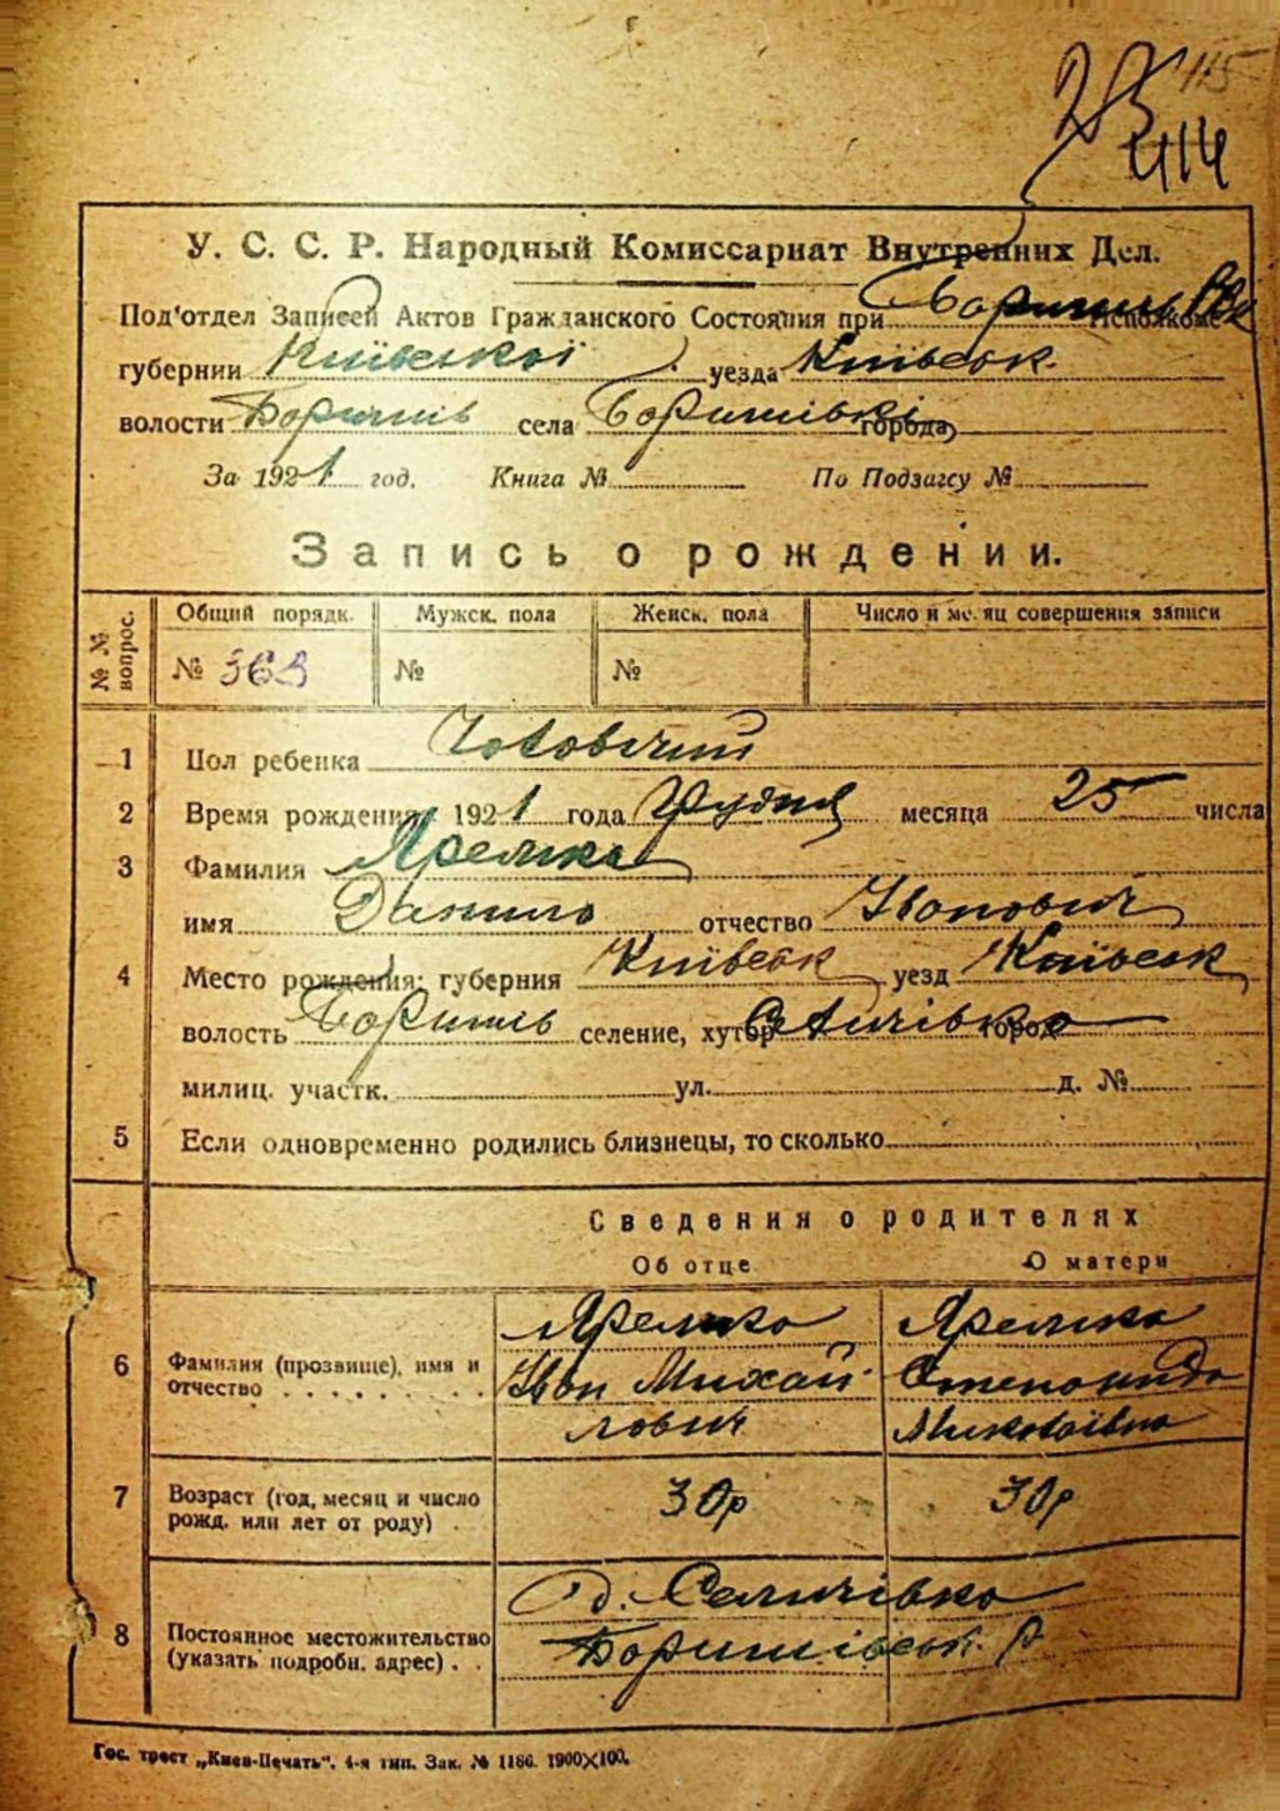 115
414
У. С. С. Р. Народный Комиссариат Внутренних Дел.
Под‘отдел Записей Актов Гражданского Состояния при Исполкоме
губернии Київської уезда Київськ.
волости села города
За 1921 год. Книга № По Подзагсу №
Запись о рождении.
№№ вопрос. Общий порядк. Мужск. пола Женск. пола Число и месяц совершения записи
№ 363 № №
1 Пол ребенка Чоловічий
2 Время рождения: 1921 года Грудня месяца 25 числа
3 Фамилия Яремка
имя Данило отчество Іванович
4 Место рождения: губерния Київськ уезд Київськ
волость селение, хутор город
милиц. участк. ул. д. №
5 Если одновременно родились близнецы, то сколько
Сведения о родителях
Об отце О матери
6 Фамилия (прозвище), имя и отчество Яремко Яремка
Іван Михай Степанида
лович Миколаївна
7 Возраст (год, месяц и число рожд. или лет от роду) 30р 30р
8 Постоянное местожительство (указать подробн. адрес)
Гос. трест „Киев-Печать“. 4-я тип. Зак. № 1186. 1900×100.